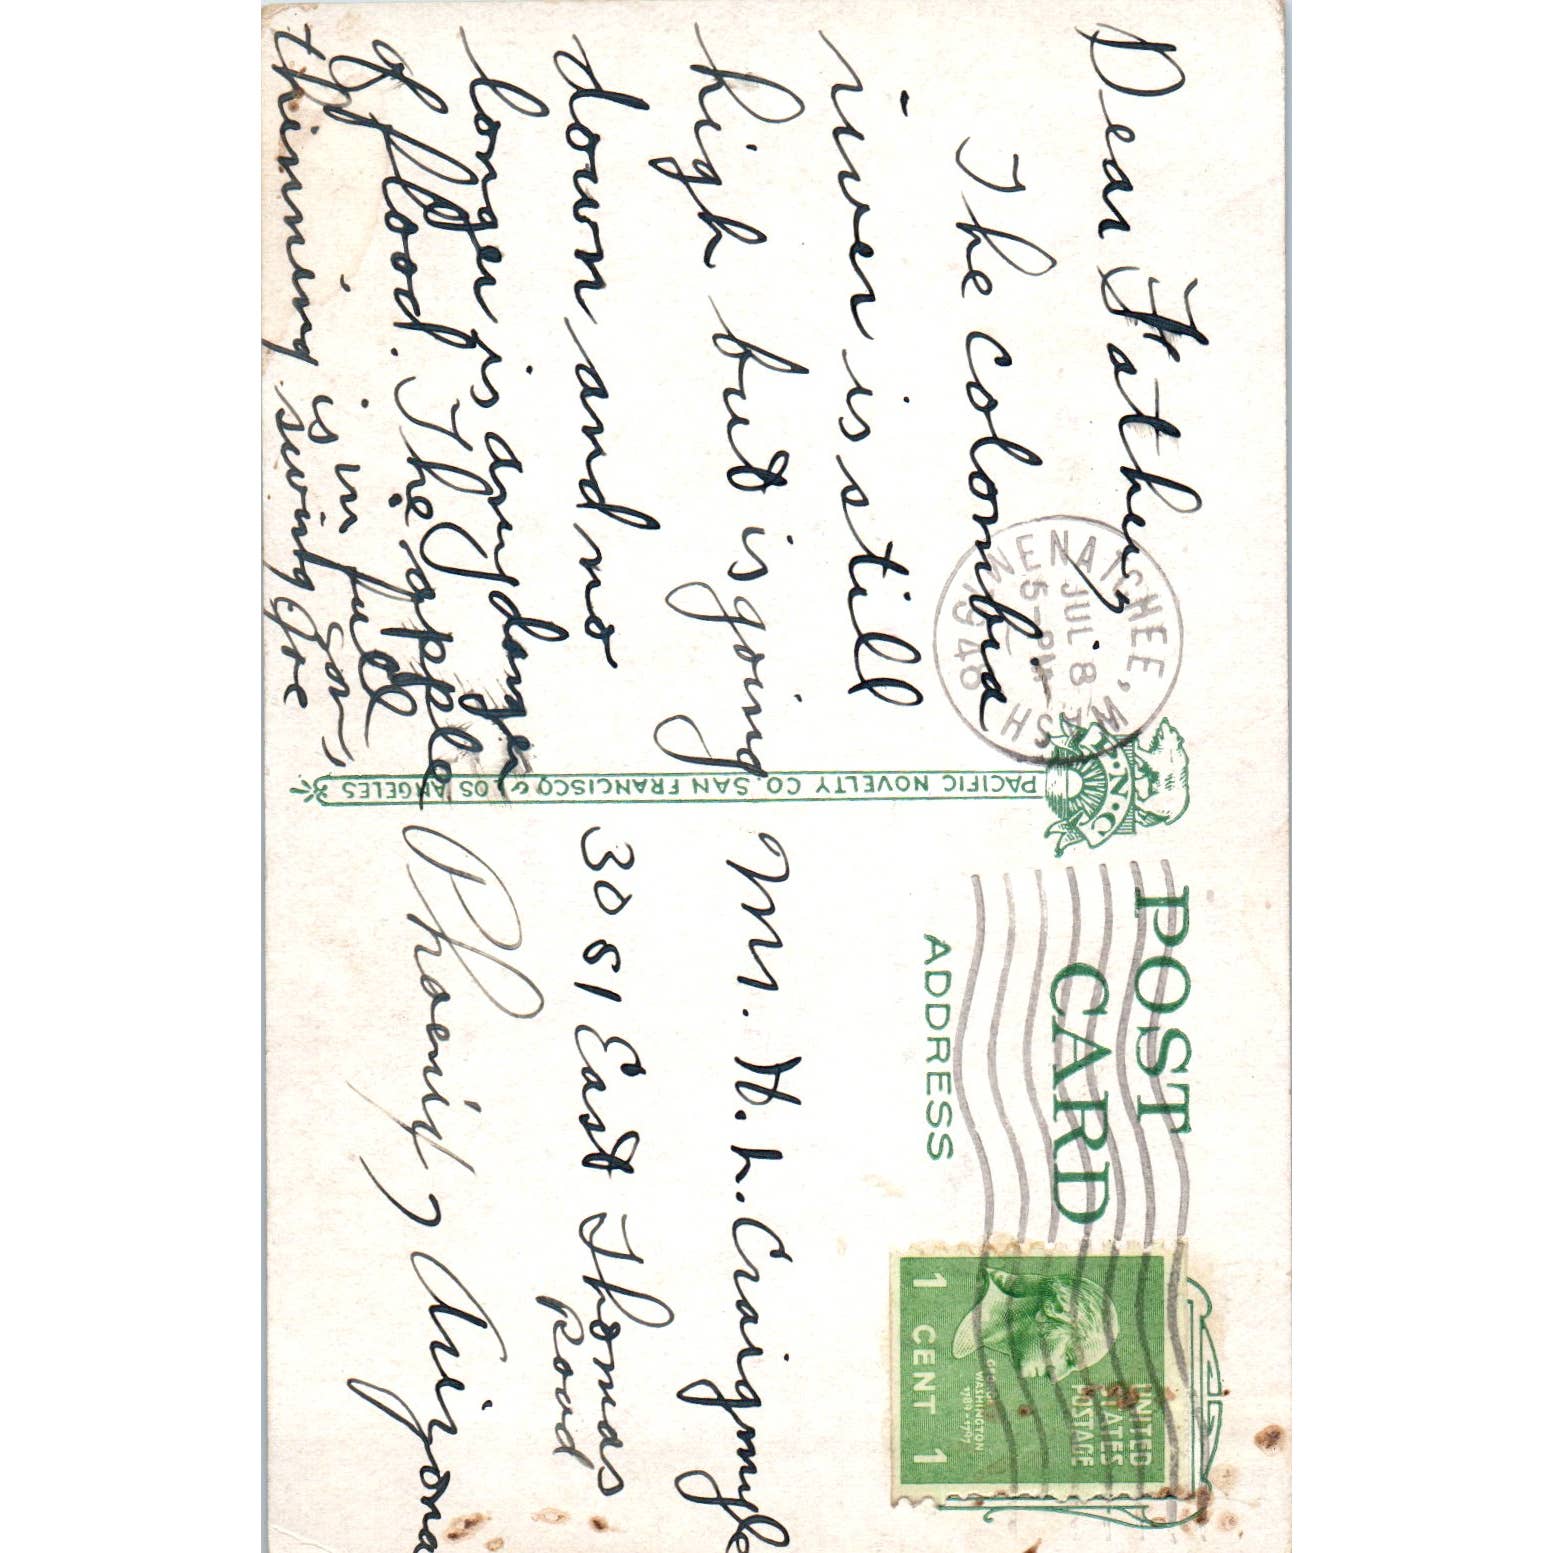 Dear Father,
The Colombia
river is still
high but is going
down and no
longer is any danger
of flood. The apple
thinning is in full
swing
PACIFIC NOVELTY CO. SAN FRANCISCO & LOS ANGELES
P.N.C.
WENATCHEE, WASH
JUL 8
5-PM
POST
CARD
ADDRESS
UNITED
STATES
POSTAGE
GEORGE
WASHINGTON
1 CENT 1
Mr. H. L. Craigmyle
3051 East Thomas
Road
Phoenix, Arizona